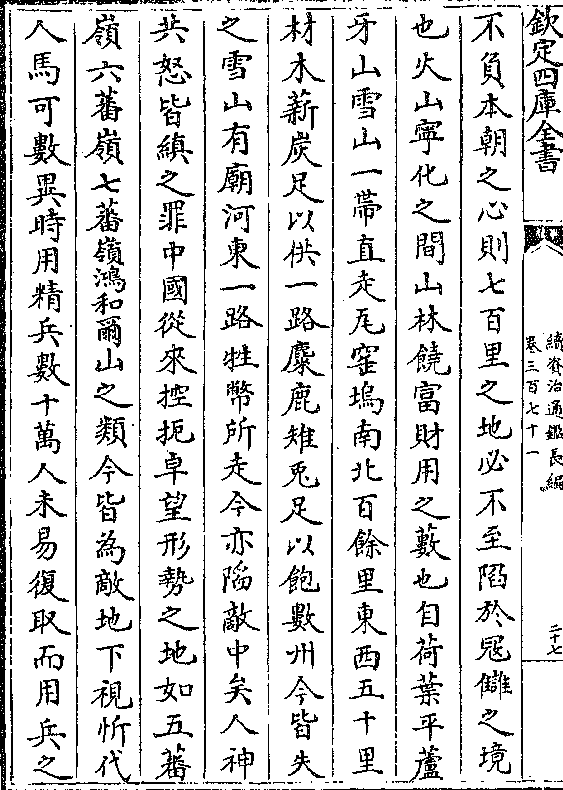 欽定四庫全書
續資治通鑑長編
卷三百七十一
二十七
不負本朝之心則七百里之地必不至陷於冦讎之境
也火山寧化之間山林饒富財用之藪也自荷葉平蘆
牙山雪山一帶直走瓦窑塢南北百餘里東西五十里
材木薪炭足以供一路麋鹿雉兎足以飽數州今皆失
之雪山有廟河東一路牲幣所走今亦陷敵中矣人神
共怒皆縝之罪中國從來控扼卓望形勢之地如五蕃
嶺六蕃嶺七蕃嶺鴻和爾山之類今皆為敵地下視忻代
人馬可數異時用精兵數十萬人未易復取而用兵之